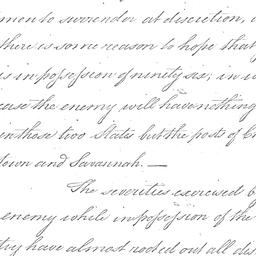 men to surrender at discretion,
there is some reason to hope that
is in possession of ninety six; in
case the enemy will have nothing
in those two States but the posts of
town and Savannah. —
The severities exercised b
enemy while in possession of the
try have almost rooted out all dis